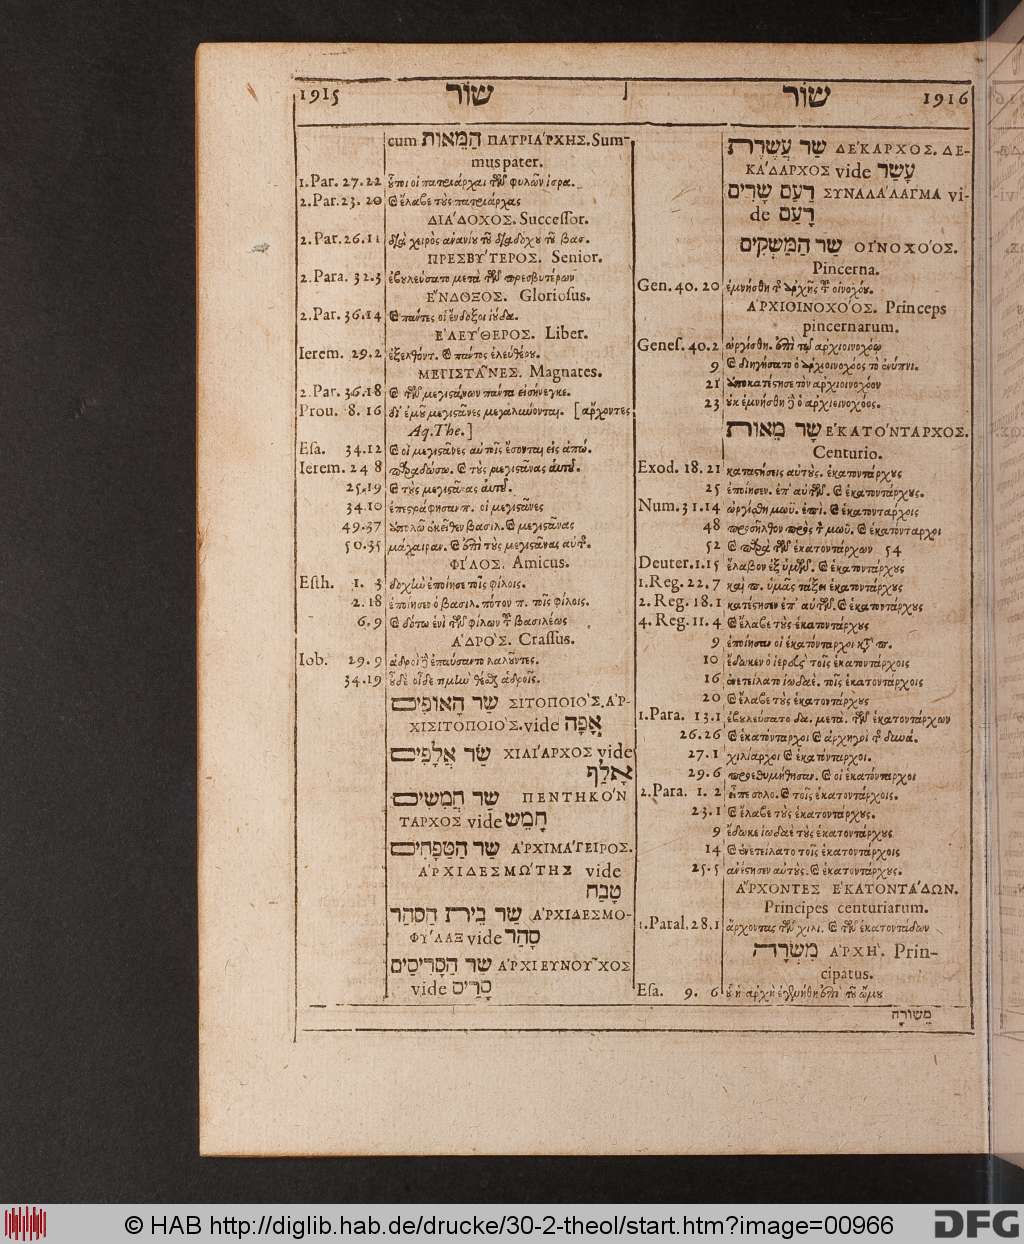 1915 שור
cum הַמֵּאוֹת ΠΑΤΡΙΆΡΧΗΣ. Sum-
mus pater.
1. Par. 27.22 οἱ πατριάρχαι τῶν φυλῶν ἰσρα.
2. Par. 23. 20 ἔλαβε τοὺς πατριάρχας
ΔΙΆΔΟΧΟΣ. Successor.
2. Par. 26.11 διὰ χειρὸς ἀνανίου τοῦ διαδόχου τοῦ βασ.
ΠΡΕΣΒΎΤΕΡΟΣ. Senior.
2. Para. 32.3 ἐβουλεύσατο μετὰ τῶν πρεσβυτέρων
ἜΝΔΟΞΟΣ. Gloriosus.
2. Par. 36.14 καὶ πάντες οἱ ἔνδοξοι ἰούδα.
ἘΛΕΎΘΕΡΟΣ. Liber.
Ierem. 29.2 ἐξελθόντ. καὶ παντὸς ἐλευθέρου.
ΜΕΓΙΣΤΑ͂ΝΕΣ. Magnates.
2. Par. 36.18 καὶ τῶν μεγιστάνων πάντα εἰσήνεγκε.
Prou. 8. 16 δι' ἐμοῦ μεγιστᾶνες μεγαλύνονται. [ἄρχοντες
Aq. The.]
Esa. 34.12 καὶ οἱ μεγιστᾶνες αὐτοῖς ἔσονται εἰς ἀπώ.
Ierem. 24 8 παραδώσω. καὶ τοὺς μεγιστᾶνας αὐτοῦ.
25.19 καὶ τοὺς μεγιστᾶνας αὐτοῦ.
34.10 ἐπεστράφησαν π. οἱ μεγιστᾶνες
49.37 ἐκεῖθεν βασιλ. καὶ μεγιστᾶνας
50.35 μάχαιραν. καὶ ἐπὶ τοὺς μεγιστᾶνας αὐτῆς.
ΦΊΛΟΣ. Amicus.
Esth. 1. 3 δοχὴν ἐποίησε τοῖς φίλοις.
2.18 ἐποίησεν ὁ βασιλ. πότον π. τοῖς φίλοις.
6.9 καὶ δότω ἑνὶ τῶν φίλων τοῦ βασιλέως
ἉΔΡΌΣ. Crassus.
Iob. 29. 9 ἁδροὶ δὲ ἐπαύσαντο λαλοῦντες.
34.19 οὐδὲ οἶδε τιμὴν θέσθαι ἁδροῖς.
שַׂר הָאוֹפִים ΣΙΤΟΠΟΙΌΣ. ἈΡ-
ΧΙΣΙΤΟΠΟΙΌΣ. vide אָפָה
שַׂר אֲלָפִים ΧΙΛΊΑΡΧΟΣ vide
אָלַף
שַׂר חֲמִשִּׁים ΠΕΝΤΗΚΌΝ
ΤΑΡΧΟΣ vide חָמֵשׁ
שַׂר הַטַּבָּחִים ἈΡΧΙΜΆΓΕΙΡΟΣ.
ἈΡΧΙΔΕΣΜΏΤΗΣ vide
טָבַח
שַׂר בֵּית הַסֹּהַר ἈΡΧΙΔΕΣΜΟ-
ΦΎΛΑΞ vide סָהַר
שַׂר הַסָּרִיסִים ἈΡΧΙΕΥΝΟΥ͂ΧΟΣ
vide סָרִיס
שור 1916
שַׂר עֲשֶׂרֶת ΔΈΚΑΡΧΟΣ. ΔΕ-
ΚΆΔΑΡΧΟΣ vide עָשַׂר
רָעַם שָׂרִים ΣΥΝΑΛΆΛΑΓΜΑ vi-
de רָעַם
שַׂר הַמַּשְׁקִים ΟἸΝΟΧΌΟΣ.
Pincerna.
Gen. 40. 20 ἐμνήσθη τῆς ἀρχῆς τοῦ οἰνοχόου.
ἈΡΧΙΟΙΝΟΧΌΟΣ. Princeps
pincernarum.
Genes. 40.2 ὠργίσθη. ἐπὶ τῷ ἀρχιοινοχόῳ
9 καὶ διηγήσατο ὁ ἀρχιοινοχόος τὸ ἐνύπνι.
21 ἀποκατέστησε τὸν ἀρχιοινοχόον
23 οὐκ ἐμνήσθη δὲ ὁ ἀρχιοινοχόος.
שַׂר מֵאוֹת ἙΚΑΤΌΝΤΑΡΧΟΣ.
Centurio.
Exod. 18. 21 καταστήσεις αὐτοὺς. ἑκατοντάρχους
25 ἐποίησεν. ἐπ' αὐτῶν. καὶ ἑκατοντάρχους.
Num. 31.14 ὠργίσθη μωϋ. ἐπὶ. καὶ ἑκατοντάρχοις
48 προσῆλθον πρὸς τ μωϋ. καὶ ἑκατόνταρχοι
52 καὶ παρὰ τῶν ἑκατοντάρχων 54
Deuter. 1.15 ἔλαβον ἐξ ὑμῶν. καὶ ἑκατοντάρχους
1. Reg. 22. 7 καὶ π. ὑμᾶς τάξει ἑκατοντάρχους
2. Reg. 18.1 κατέστησεν ἐπ' αὐτῶν. καὶ ἑκατοντάρχους
4. Reg. 11. 4 καὶ ἔλαβε τοὺς ἑκατοντάρχους
9 ἐποίησαν οἱ ἑκατόνταρχοι κατὰ π.
10 ἔδωκεν ὁ ἱερεὺς τοῖς ἑκατοντάρχοις
16 ἐνετείλατο ἰωδαὲ. τοῖς ἑκατοντάρχοις
20 καὶ ἔλαβε τοὺς ἑκατοντάρχους
1. Para. 13.1 ἐβουλεύσατο δα. μετὰ. τῶν ἑκατοντάρχων
26.26 καὶ ἑκατόνταρχοι καὶ ἀρχηγοὶ τῆς δυνά.
27.1 χιλίαρχοι καὶ ἑκατόνταρχοι.
29.6 προεθυμήθησαν. καὶ οἱ ἑκατόνταρχοι
2. Para. 1. 2 εἶπε σολο. καὶ τοῖς ἑκατοντάρχοις.
23.1 καὶ ἔλαβε τοὺς ἑκατοντάρχους.
9 ἔδωκε ἰωδαὲ τοὺς ἑκατοντάρχους
14 καὶ ἐνετείλατο τοῖς ἑκατοντάρχοις
25.5 ἀνέστησεν αὐτοὺς. καὶ ἑκατοντάρχους.
ἌΡΧΟΝΤΕΣ ἙΚΑΤΟΝΤΆΔΩΝ.
Principes centuriarum.
1. Paral. 28.1 ἄρχοντας τῶν χιλι. καὶ τῶν ἑκατοντάδων
מִשְׂרָה ἈΡΧΉ. Prin-
cipatus.
Esa. 9. 6 οὗ ἡ ἀρχὴ ἐγενήθη ἐπὶ τοῦ ὤμου
מְשׂוּרָה
© HAB http://diglib.hab.de/drucke/30-2-theol/start.htm?image=00966 DFG